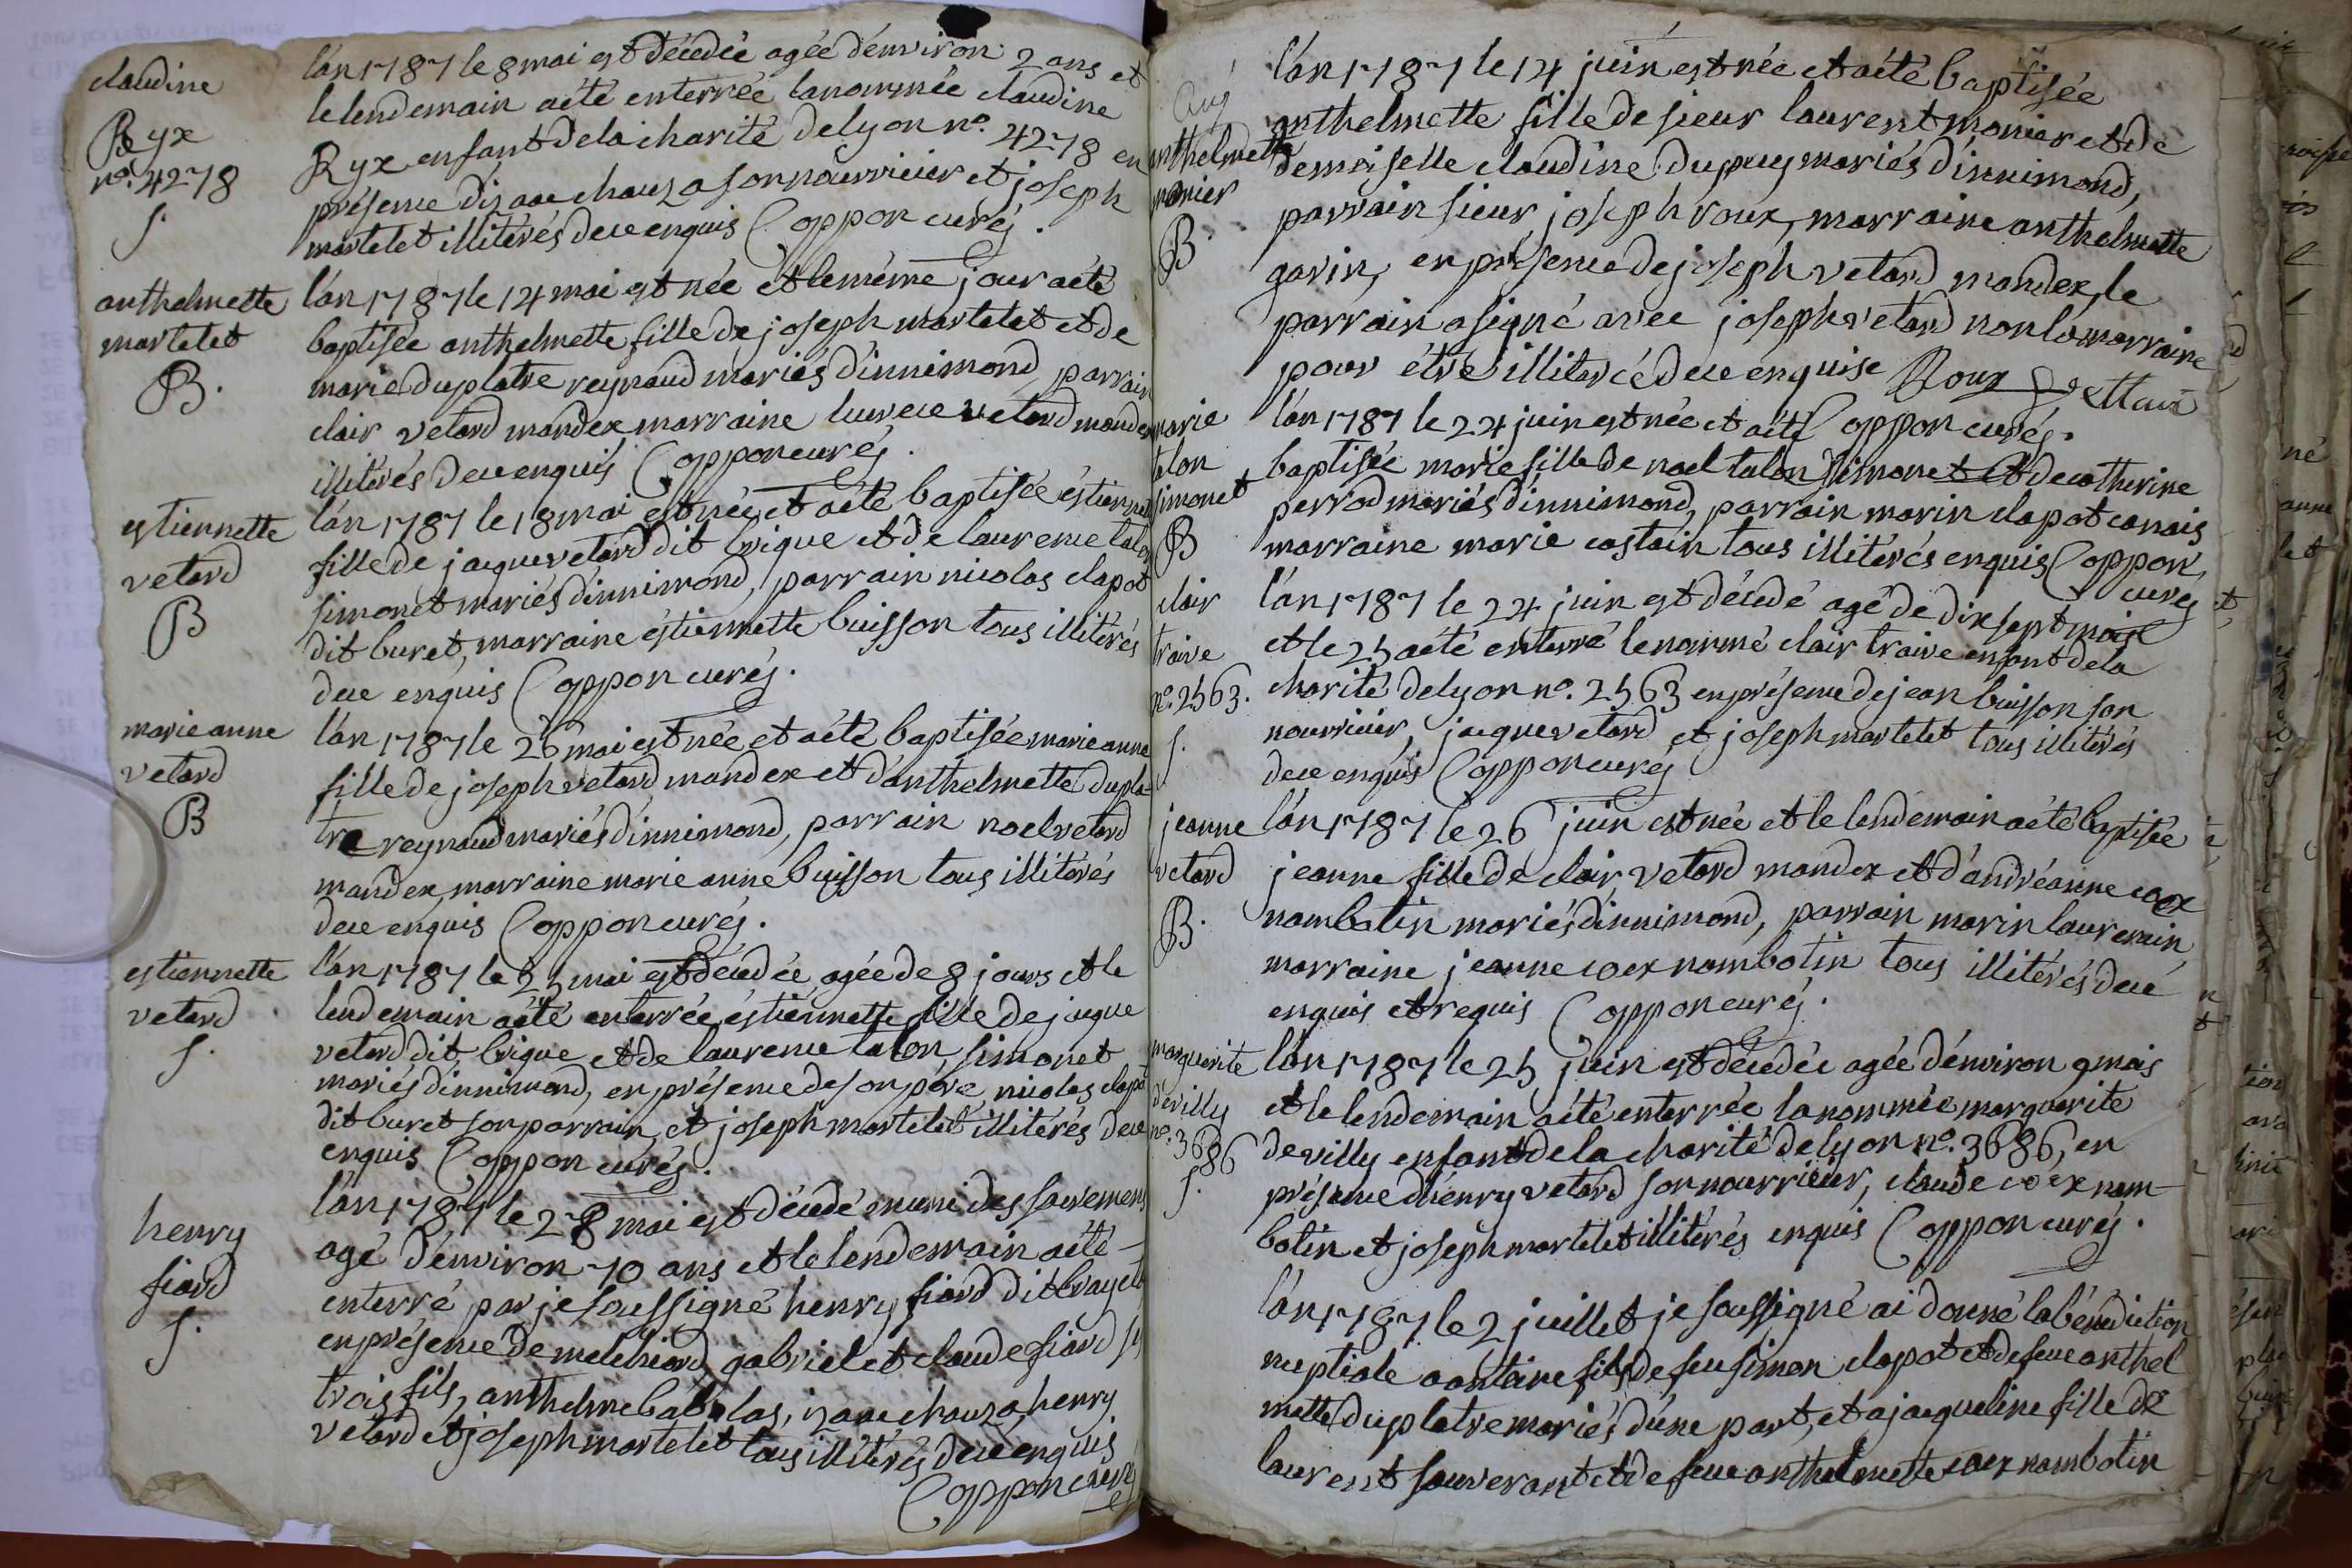 claudine
Ryx
no. 4278
S.
l'an 1787 le 8 mai est décédée agée d'environ 2 ans et
le lendemain a été enterrée la nommée claudine
Ryx enfant de la charité de lyon no. 4278 en
présence d'izaac chauza son nourricier et joseph
martelet illitérés de ce enquis Coppon curé.
anthelmette
martelet
B.
l'an 1787 le 14 mai est née et le même jour a été
baptisée anthelmette fille de joseph martelet et de
marie duplatre reynaud mariés d'innimond, parrain
clair vetard mandex marraine lucrece vetard mandex
illitérés de ce enquis Coppon curé.
estiennette
vetard
B
l'an 1787 le 18 mai est née et a été baptisée estiennette
fille de jacque vetard dit brique et de laurence talon
simonet mariés d'innimond, parrain nicolas clapot
dit buret, marraine éstiennette buisson tous illitérés
de ce enquis Coppon curé.
marie anne
vetard
B
l'an 1787 le 26 mai est née et a été baptisée marie anne
fille de joseph vetard mandex et d'anthelmette dupla-
tre reynaud mariés d'innimond, parrain noel vetard
mandex, marraine marie anne buisson tous illitérés
de ce enquis Coppon curé.
estiennette
vetard
S.
l'an 1787 le 25 mai est décédée agée de 8 jours et le
lendemain a été enterrée éstiennette fille de jaque
vetard dit brique et de laurence talon simonet
mariés d'innimond, en présence de son père, nicolas clapot
dit buret son parrain, et joseph martelet illitérés de ce
enquis Coppon curé.
henry
fiard
S.
l'an 1787 le 28 mai est décédé muni des sacremens
agé d'environ 70 ans et le lendemain a été
enterré par je soussigné henry fiard dit brayet
en présence de melchiord, gabriel et claude fiard
trois fils, anthelme babolas, izaac chauza, henry
vetard et joseph martelet tous illitérés de ce enquis
Coppon curé
anthelmette
monier
B.
l'an 1787 le 14 juin est née et a été baptisée
anthelmette fille de sieur laurent monier et de
demoiselle claudine dupuy mariés d'innimond,
parrain sieur joseph roux, marraine anthelmette
garin, en présence de joseph vetard mandex, le
parrain a signé avec joseph vetard non la marraine
pour être illiterée de ce enquise Roux Vettard
Coppon curé.
marie
talon
simonet
B
l'an 1787 le 24 juin est née et a été
baptisée marie fille de noel talon simonet et de catherine
perrod mariés d'innimond, parrain marin clapot canais
marraine marie costain tous illitérés enquis Coppon
curé
clair
traive
no. 2563.
S.
l'an 1787 le 24 juin est décédé agé de dix sept mois
et le 25 a été enterré le nommé clair traive enfant de la
charité de lyon no. 2563 en présence de jean buisson son
nourricier, jacque vetard et joseph martelet tous illitérés
de ce enquis Coppon curé
jeanne
vetard
B.
l'an 1787 le 26 juin est née et le lendemain a été baptisée
jeanne fille de clair vetard mandex et d'andréanne coex
nambotin mariés d'innimond, parrain marin laurencin,
marraine jeanne coex nambotin tous illitérés de ce
enquis et requis Coppon curé.
marguerite
devilly
no. 3686
S.
l'an 1787 le 25 juin est décédée agée d'environ 9 mois
et le lendemain a été enterrée la nommée marguerite
devilly enfant de la charité de lyon no. 3686, en
présence d'henry vetard son nourricier, claude coex nam-
botin et joseph martelet illitérés enquis Coppon curé.
l'an 1787 le 2 juillet je soussigné ai donné la bénédiction
nuptiale a antoine fils de feu simon clapot et de feue anthel
mette duplatre mariés d'une part, et a jacqueline fille de
laurent souverant et de feue anthelmette coex nambotin